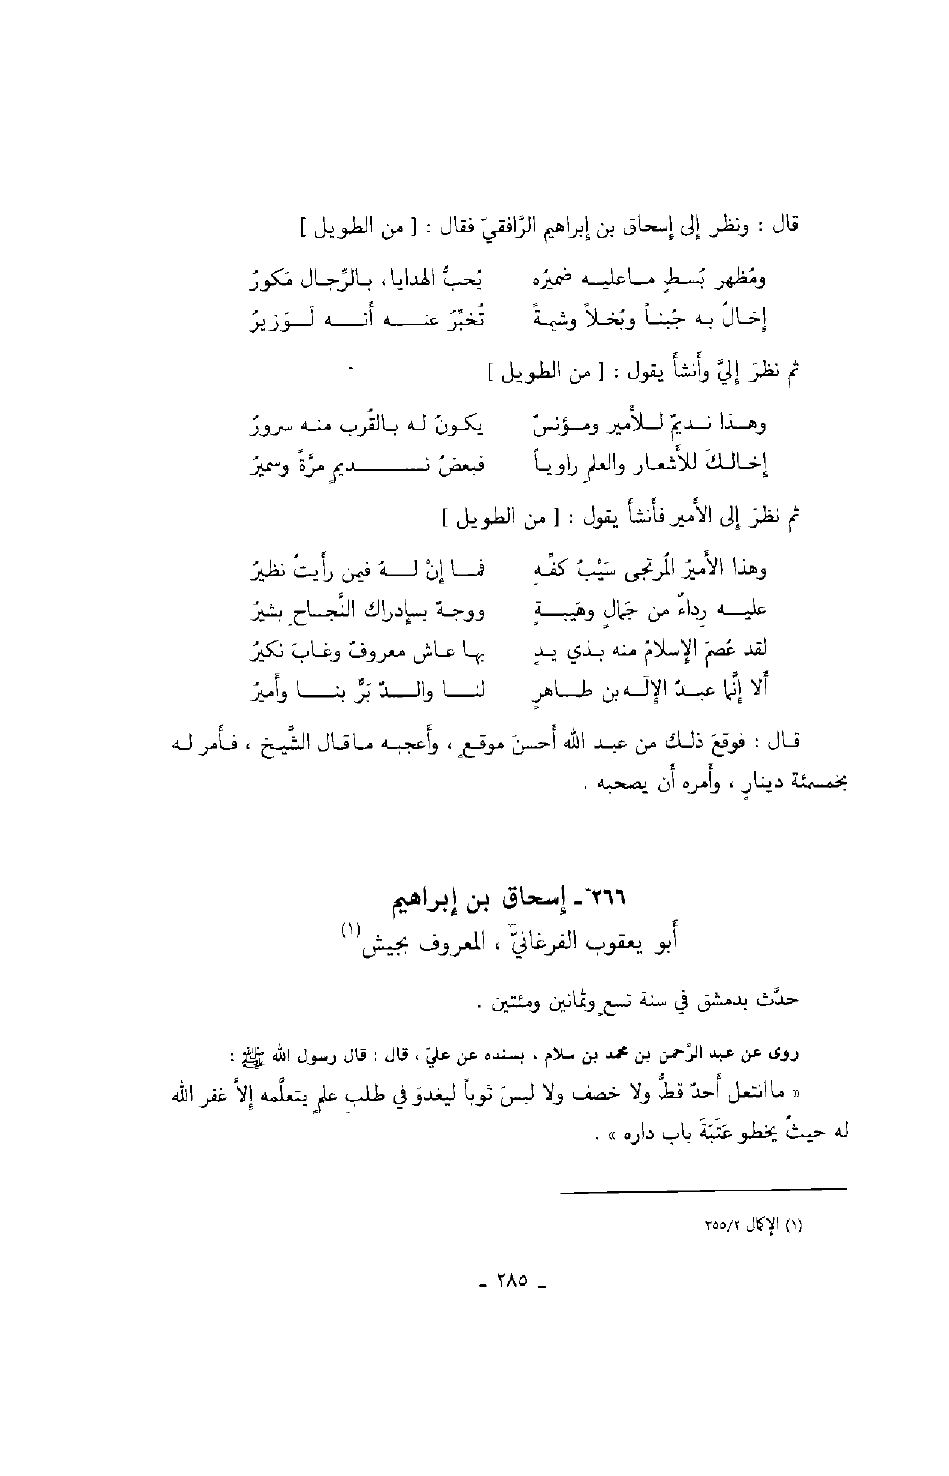 قال : ونظر إلى إسحاق بن إبراهيم الرَّافقيّ فقال : [ من الطويل ]
ومُظهر بُسطٍ ماعليه ضميرُه يُحبُّ الهدايا، بالرِّجال مَكورُ
إخالُ به جُبناً وبُخلاً وشيمةً تُخبِّرُ عنه أنه لَوَزيرُ
ثم نظرَ إليَّ وأنشأ يقول : [ من الطويل ]
وهذا نديمٌ للأمير ومؤنسٌ يكونُ له بالقُرب منه سرورُ
إخالكَ للأشعار والعلمِ راوياً فبعضُ نديمٍ مرَّةً وسميرُ
ثم نظرَ إلى الأمير فأنشأ يقول : [ من الطويل ]
وهذا الأميرُ المُرتجى سَيْبُ كفِّهِ فما إنْ لهُ فيمن رأيتُ نظيرُ
عليه رداءٌ من جمالٍ وهَيبةٍ ووجهٌ بإدراك النَّجاحِ بشيرُ
لقد عُصمَ الإسلامُ منه بذي يدٍ بها عاش معروفٌ وغابَ نكيرُ
ألا إنَّما عبدُ الإله بن طاهرٍ لنا والدٌ بَرٌّ بنا وأميرُ
قال : فوقعَ ذلك من عبد الله أحسنَ موقعٍ ، وأعجبه ماقال الشَّيخ ، فأمر له
بخمسمئة دينارٍ ، وأمره أن يصحبه .
٢٦٦ - إسحاق بن إبراهيم
أبو يعقوب الفرغانيّ ، المعروف بجيش(١)
حدَّث بدمشق في سنة تسعٍ وثمانين ومئتين .
روى عن عبد الرَّحمن بن محمد بن سلام ، بسنده عن عليّ ، قال : قال رسول الله ﷺ :
« ماانتعل أحدٌ قطُّ ولا خصف ولا لبسَ ثوباً ليغدوَ في طلب علمٍ يتعلَّمه إلاَّ غفر الله
له حيثُ يخطو عَتَبَةَ باب داره » .
(١) الإكمال ٢٥٥/٢
- ٢٨٥ -